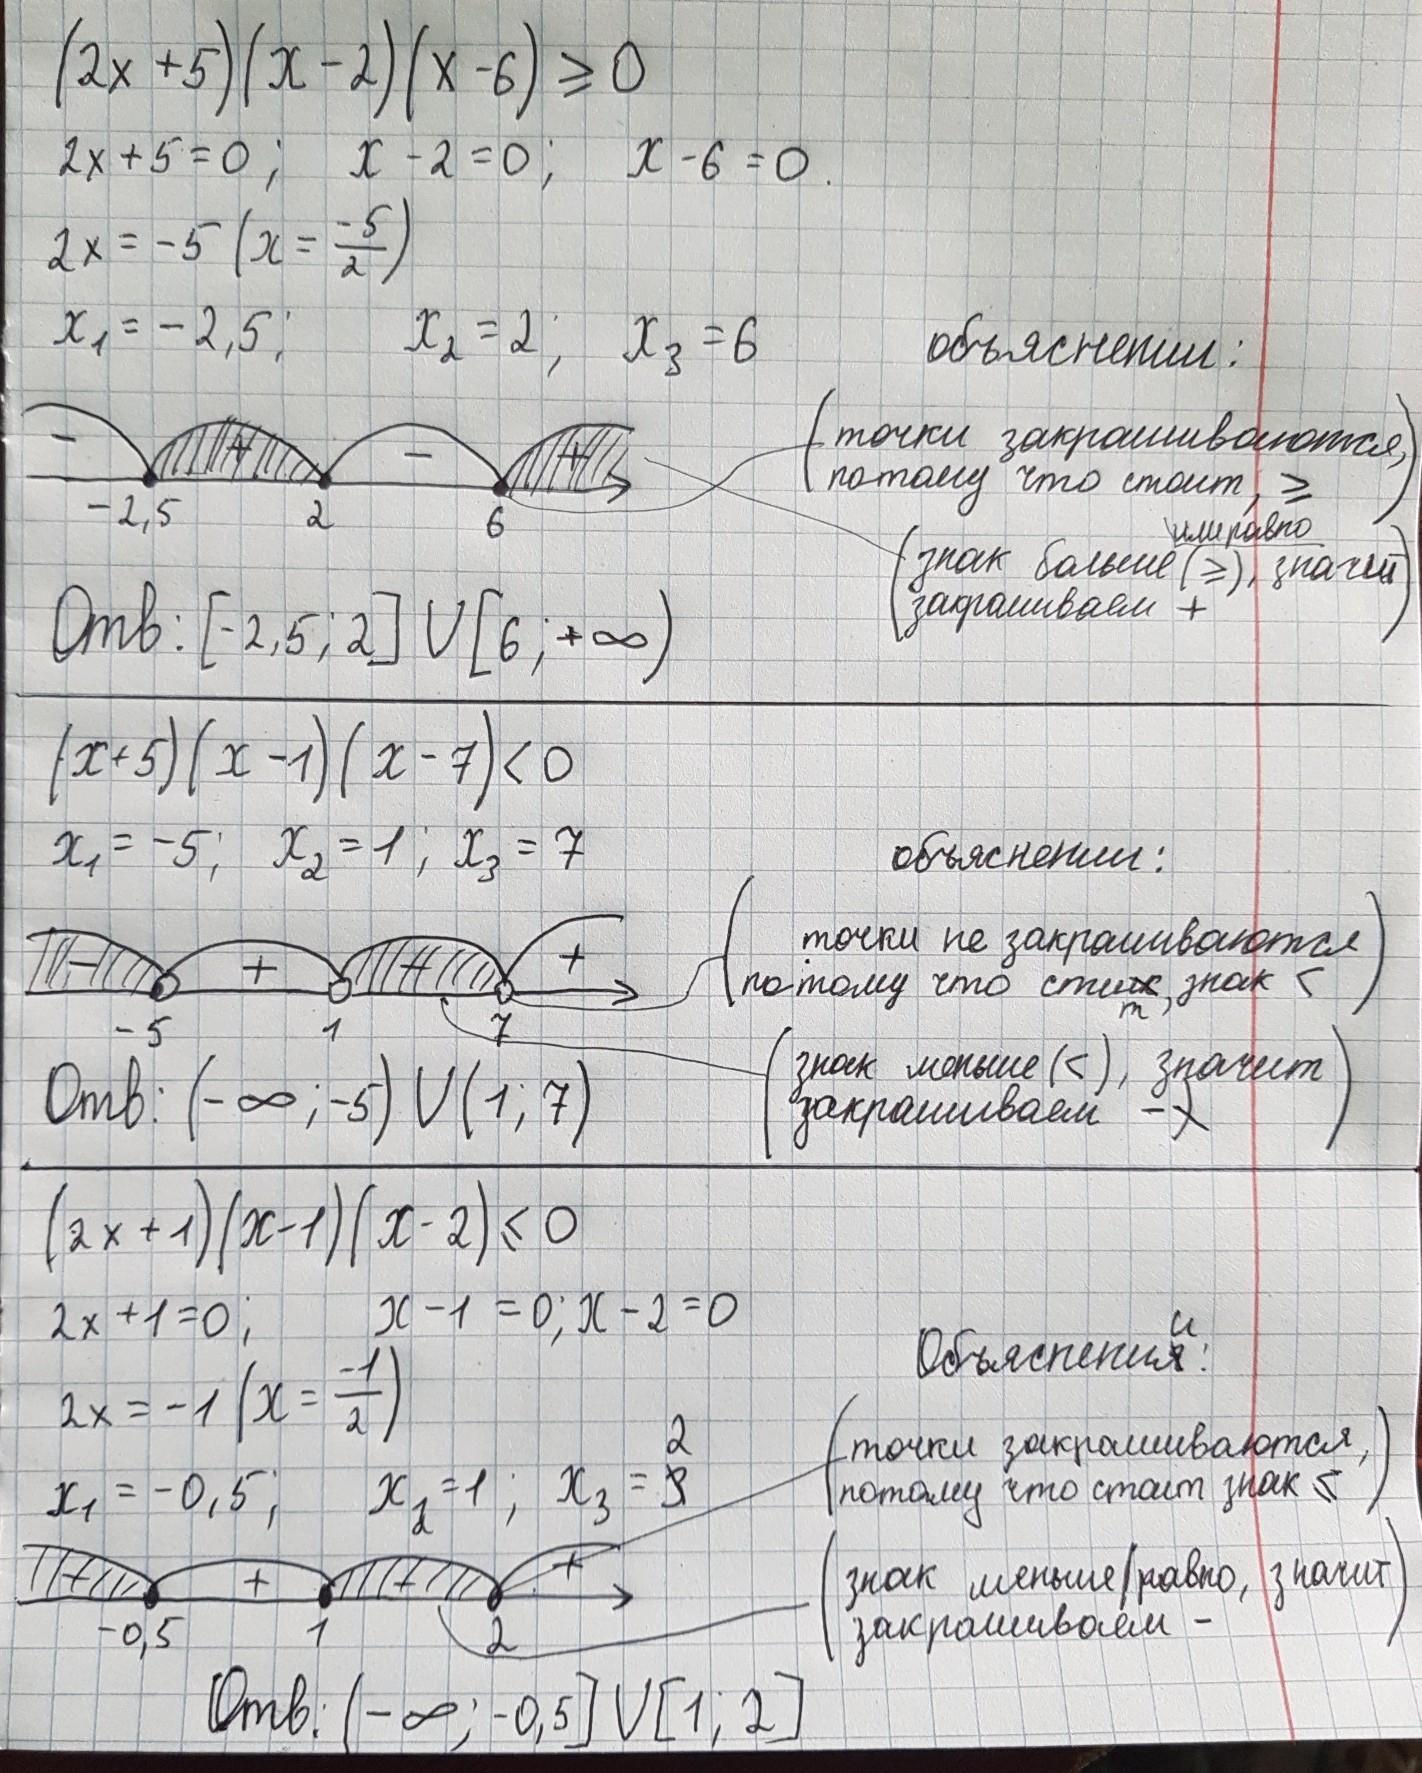 (2x+5)(x-2)(x-6)≥0
2x+5=0; x-2=0; x-6=0.
2x=-5 (x=-5/2)
x₁=-2,5; x₂=2; x₃=6
объяснении:
- + - +
-2,5 2 6
(точки закрашиваются,
потому что стоит, ≥)
или равно
(знак больше (≥), значит
закрашиваем +)
Отв: [-2,5; 2] U [6; +∞)
(x+5)(x-1)(x-7)<0
x₁=-5; x₂=1; x₃=7
объяснении:
- + - +
-5 1 7
(точки не закрашиваются
потому что стоит, знак <)
(знак меньше (<), значит
закрашиваем -)
Отв: (-∞; -5) U (1; 7)
(2x+1)(x-1)(x-2)≤0
2x+1=0; x-1=0; x-2=0
2x=-1 (x=-1/2)
Объяснении:
x₁=-0,5; x₂=1; x₃=2
- + - +
-0,5 1 2
(точки закрашиваются,
потому что стоит знак ≤)
(знак меньше/равно, значит
закрашиваем -)
Отв: (-∞; -0,5] U [1; 2]